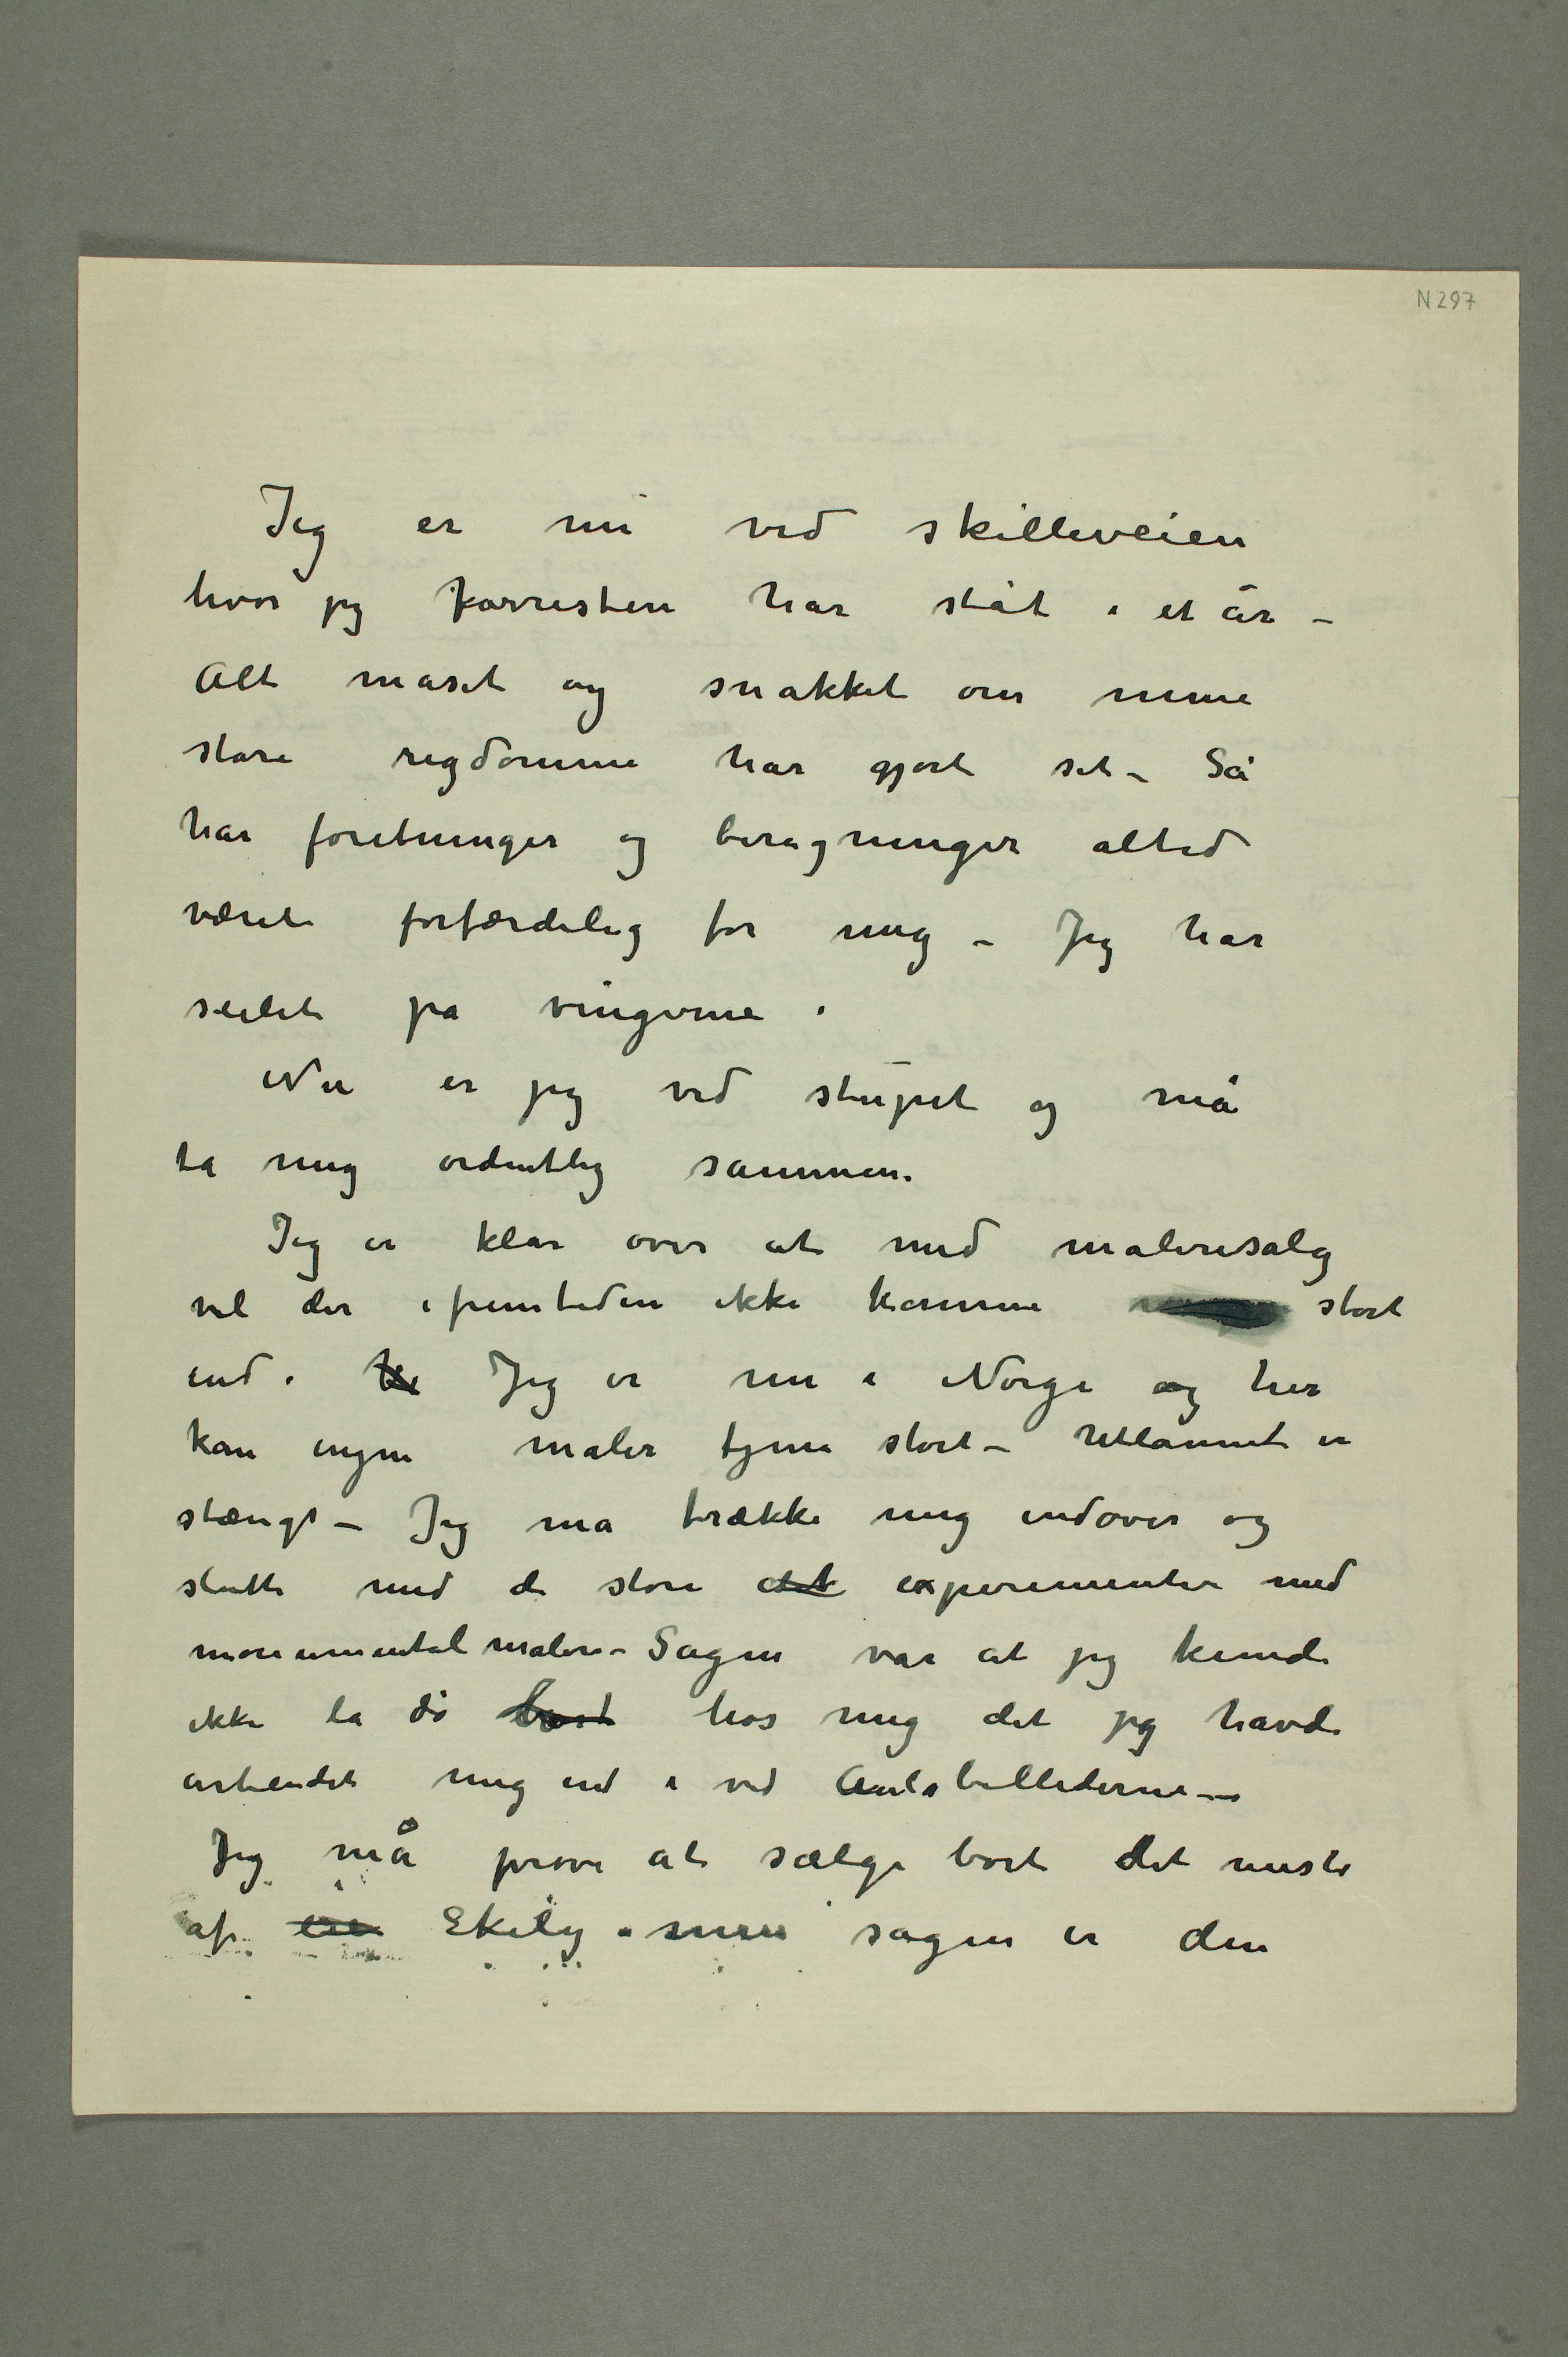 N 297
Jeg er nu ved skilleveien
hvor jeg forresten har ståt i et år –
Alt maset og snakket om mine
store rigdomme har gjort sit – Så
har foretninger og beregninger altid
været forfærdelig for mig – Jeg har
seilet på vingerne.
Nu er jeg ved stupet og må
ta mig ordentlig sammen.
Jeg er klar over at med malerisalg
vil der i fremtiden ikke komme stort
ind. Jeg er nu i Norge og her
kan ingen maler tjene stort – Utlannet er
stængt – Jeg må trække mig indover og
slutte med de store det experimenter med
monumentalmaleri – Sagen var at jeg kunde
ikke la dø bort hos mig det jeg havde
arbeidet mig ind i ved Aulabillederne –
Jeg må prøve at sælge bort det meste
af Ekely. men sagen er den